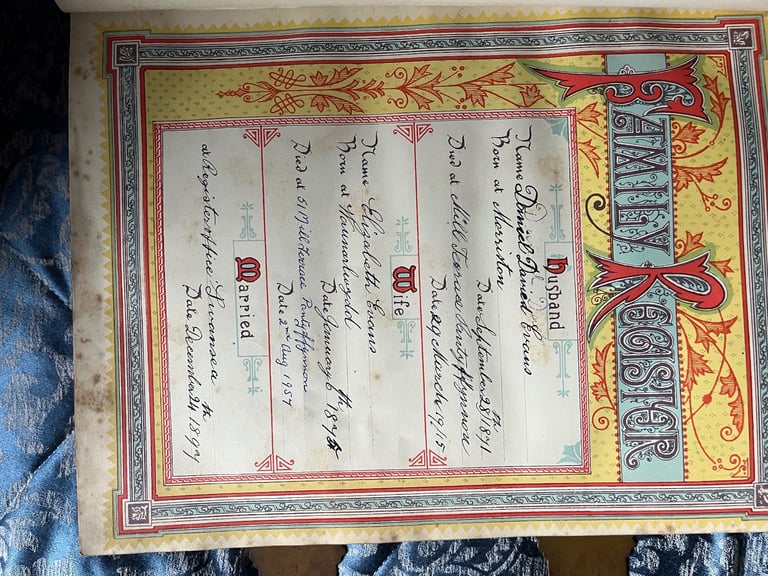 Family Register
Husband
Name Daniel David Evans
Born at Morriston
Date September 28th 1871
Died at Mill Terrace Pantyffynnon
Date 29 March 1915
Wife
Name Elizabeth Evans
Born at Waunarlwydd
Date January 6th 1875
Died at 51 Mill Terrace Pantyffynnon
Date 2nd Aug 1957
Married
at Register office Swansea
Date December 24th 1897